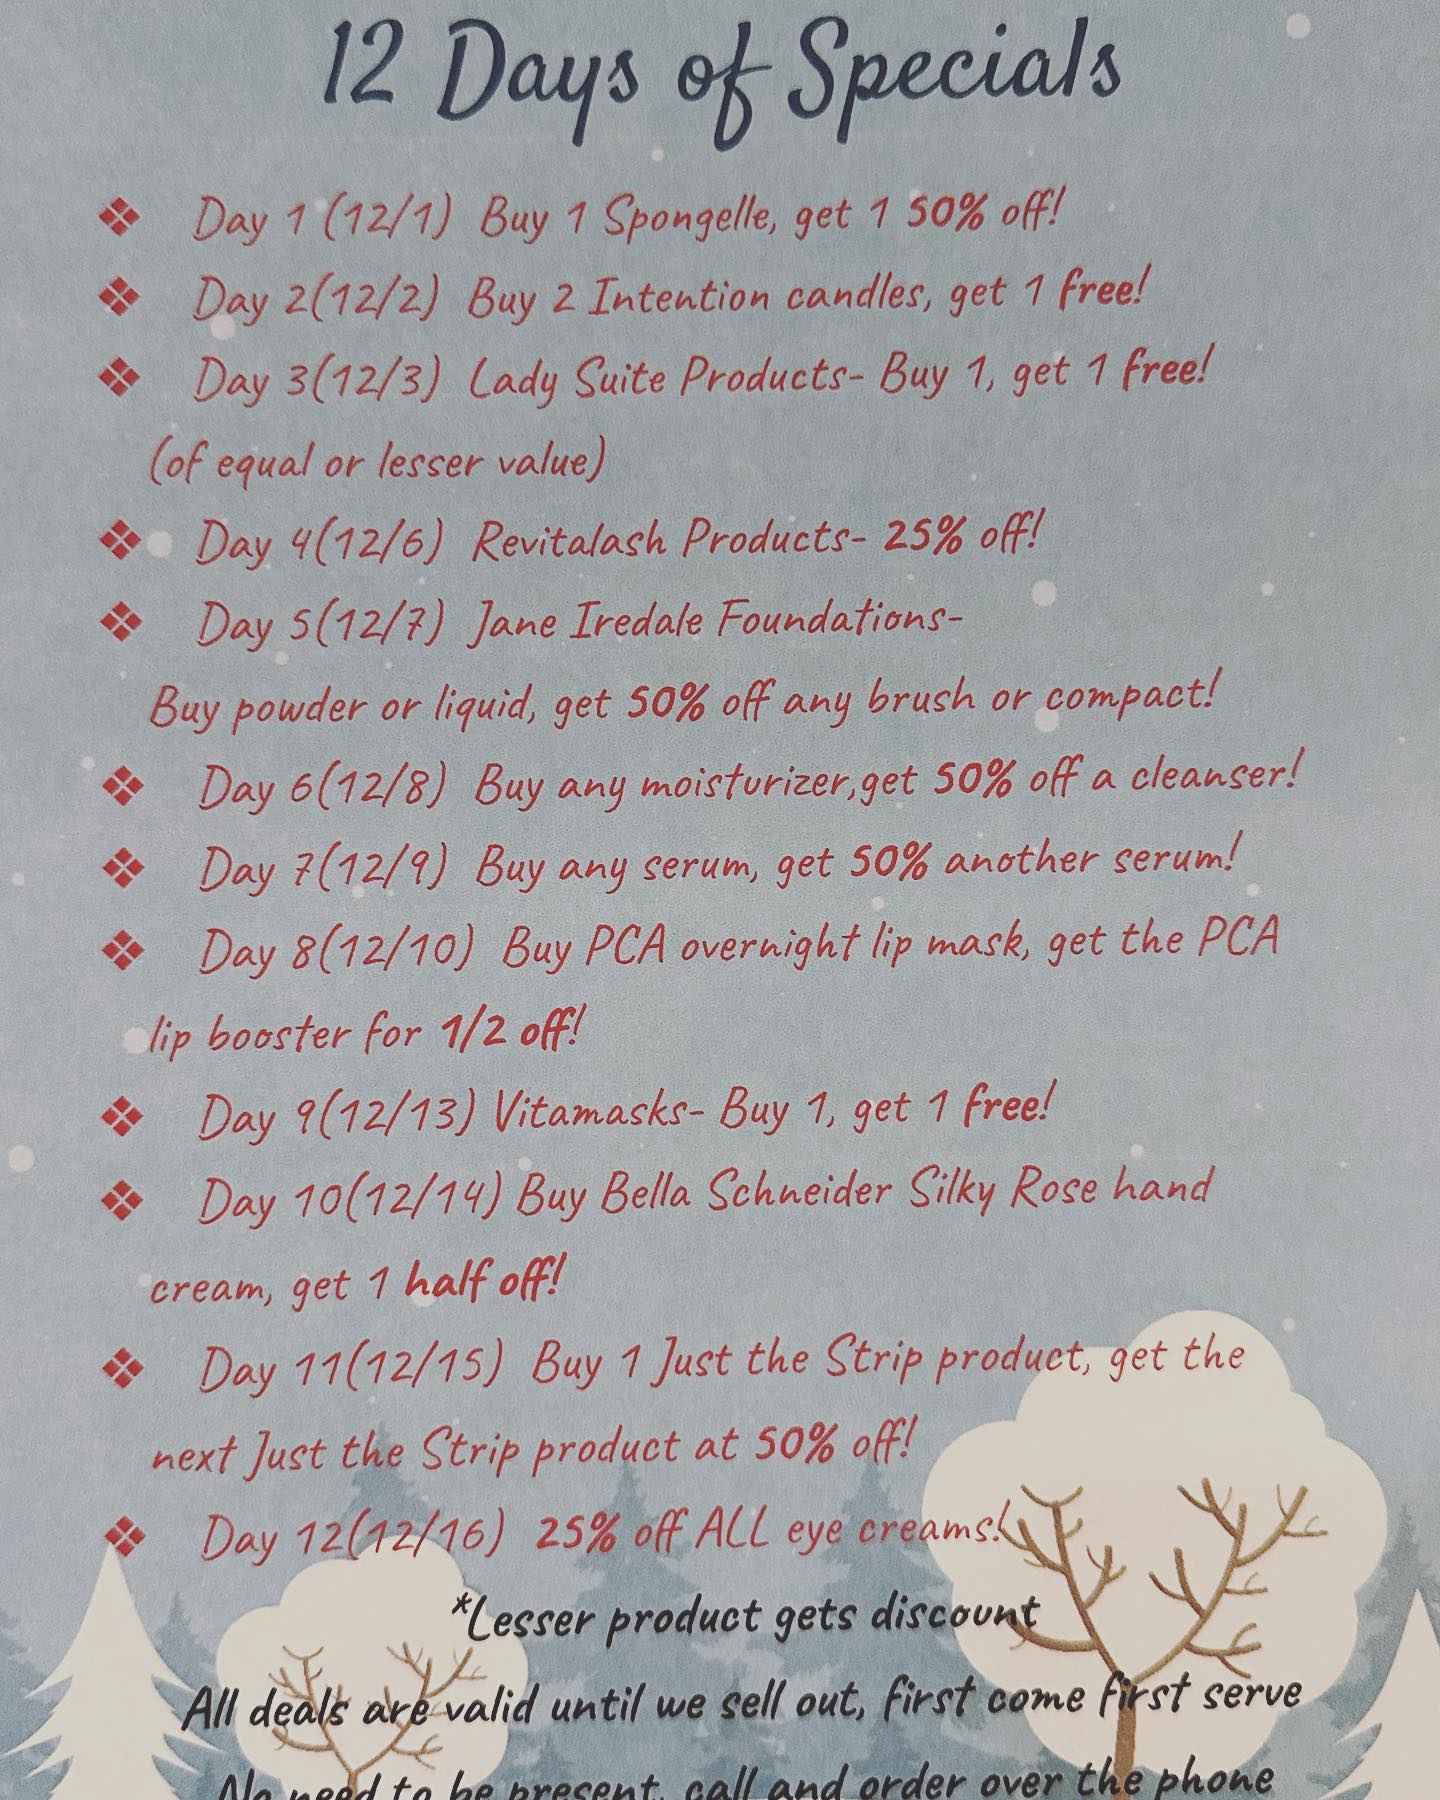 12 Days of Specials
❖ Day 1 (12/1) Buy 1 Spongelle, get 1 50% off!
❖ Day 2(12/2) Buy 2 Intention candles, get 1 free!
❖ Day 3(12/3) Lady Suite Products- Buy 1, get 1 free!
(of equal or lesser value)
❖ Day 4(12/6) Revitalash Products- 25% off!
❖ Day 5(12/7) Jane Iredale Foundations-
Buy powder or liquid, get 50% off any brush or compact!
❖ Day 6(12/8) Buy any moisturizer,get 50% off a cleanser!
❖ Day 7(12/9) Buy any serum, get 50% another serum!
❖ Day 8(12/10) Buy PCA overnight lip mask, get the PCA
lip booster for 1/2 off!
❖ Day 9(12/13) Vitamasks- Buy 1, get 1 free!
❖ Day 10(12/14) Buy Bella Schneider Silky Rose hand
cream, get 1 half off!
❖ Day 11(12/15) Buy 1 Just the Strip product, get the
next Just the Strip product at 50% off!
❖ Day 12(12/16) 25% off ALL eye creams!
*Lesser product gets discount
All deals are valid until we sell out, first come first serve
No need to be present, call and order over the phone